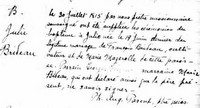 B.
Julie
Bubeau
le 30 juillet 1815 par nous prêtre missionnaire
soussigné ont été suppléés les cérémonies du
baptême à Julie née le 19 juin dernier du
légitime mariage de François Bubeau, culti-
vateur et de Marie
Parrain
marraine Marie
Bubeau, qui ont déclaré ainsi que le père présent
ne savoir signer
Ph. Aug. Parent, Ptre miss.